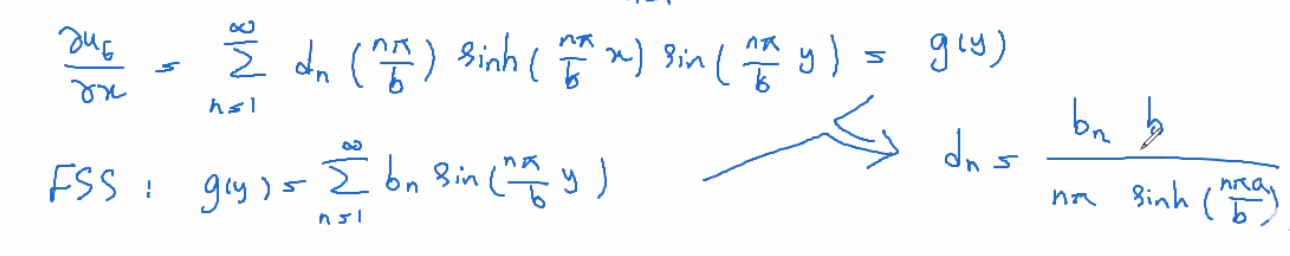 ∂u₆/∂x = ∑_{n=1}^{∞} dₙ (nπ/b) sinh(nπ/b x) sin(nπ/b y) = g(y)
FSS : g(y) = ∑_{n=1}^{∞} bₙ sin(nπ/b y)
dₙ = bₙ b / nπ sinh(nπa/b)